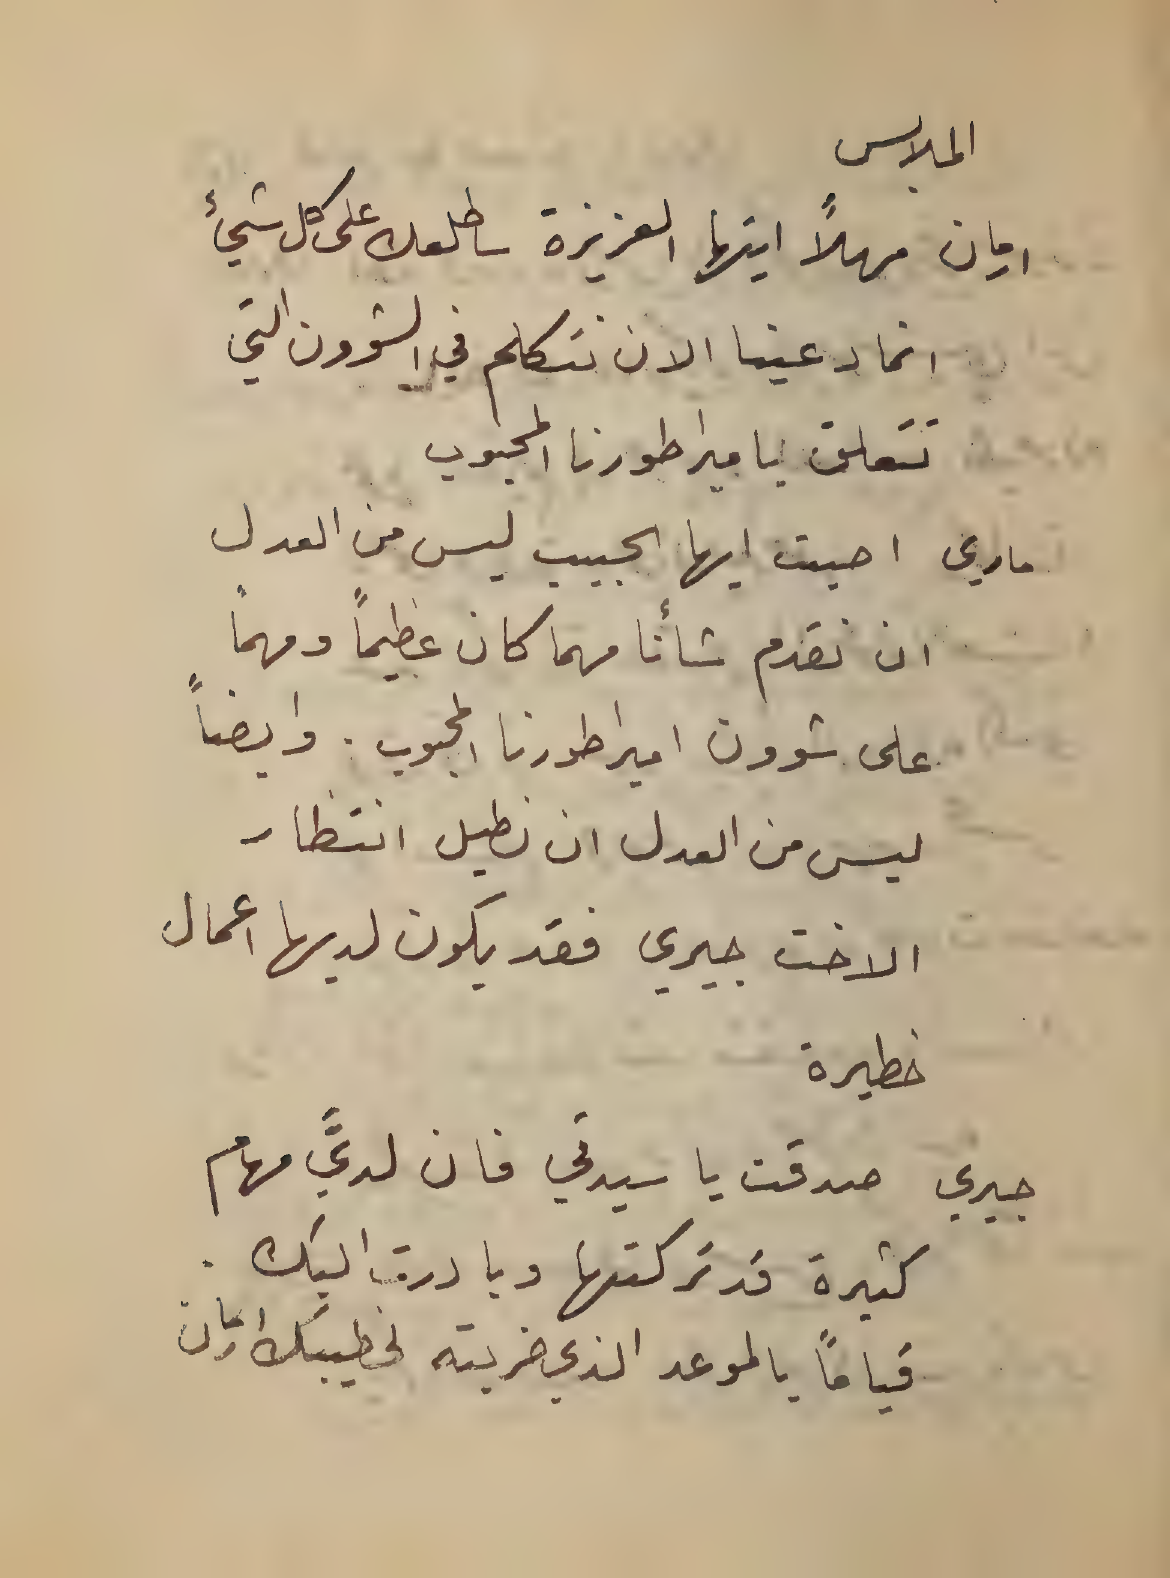 الملابس
ارمان مهلاً ايتها العزيزة ساطلعك على كل شيءٍ
انما دعينا الان نتكلم في الشوون التي
تتعلق بامبراطورنا المحبوب
ماري احبت ايها الحبيب ليس من العدل
ان نقدم شأنا مهما كان عظيماً ومهماً
على شوون امبراطورنا المحبوب . وايضاً
ليس من العدل ان نطيل انتظار
الاخت جيري فقد يكون لديها اعمال
خطيرة
جيري صدقت يا سيدتي فان لديَّ مهام
كثيرة قد تركتها وبادرت اليك .
قياماً بالموعد الذي ضربته لخطيبك ارمان